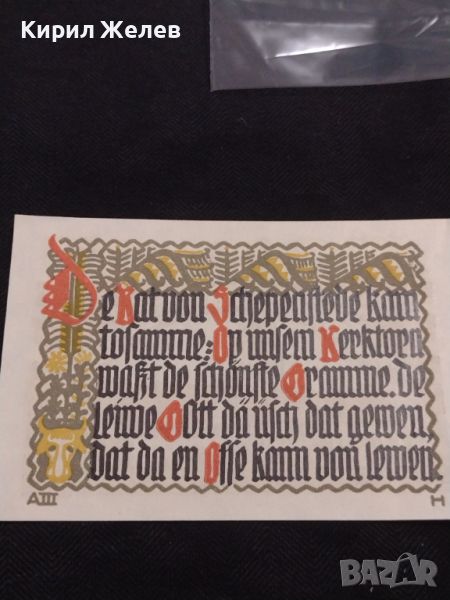 Кирил Желев
De Rat von Schepenstede kam
tosamme: Op unsem Kerktorn
waßt de schönste Gramme. de
leiwe Gott dä üsch dat gewen,
dat da en Osse kann von lewen.
A III
H
BAZAR